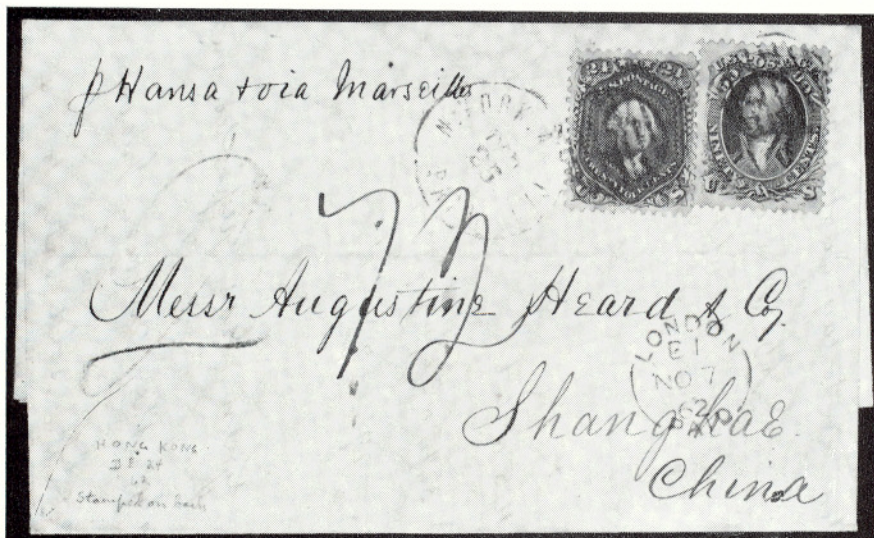 p Hansa & via Marseilles
N. YORK
PAID
25
24 U.S. POSTAGE 24
TWENTY FOUR CENTS
U S
90 90
NINETY CENTS
U S
Messr Augustine Heard & Co.
LONDON
E I
NO 7
62
PAID
Shanghae
China
HONG KONG
24
62
Stamped on back